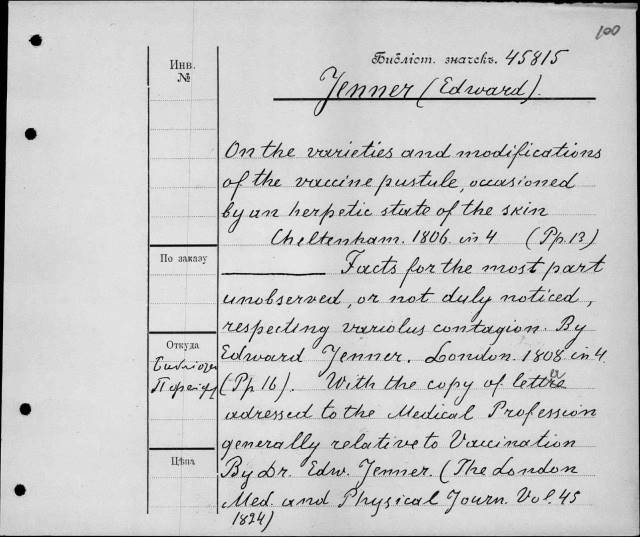 100
Библіст. значекъ. 45815
Jenner (Edward).
Инв.
№
On the varieties and modifications
of the vaccine pustule, occasioned
by an herpetic state of the skin
Cheltenham. 1806. in 4 (Pp. 13)
По заказу
Facts for the most part
unobserved, or not duly noticed,
respecting variolus contagion. By
Откуда
Edward Jenner. London. 1808. in 4.
(Pp. 16). With the copy of letter a
adressed to the Medical Profession
generally relative to Vaccination
Цѣна
By Dr. Edw. Jenner. (The London
Med. and Physical Journ. Vol. 45
1824)